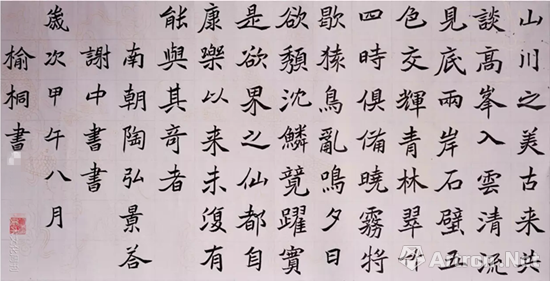 山川之美古来共
談高峯入雲清流
見底兩岸石壁五
色交輝青林翠竹
四時俱備曉霧將
歇猿鳥亂鳴夕日
欲頹沈鱗競躍實
是欲界之仙都自
康樂以来未復有
能與其奇者
南朝陶弘景答
謝中書書
歲次甲午八月
榆桐書